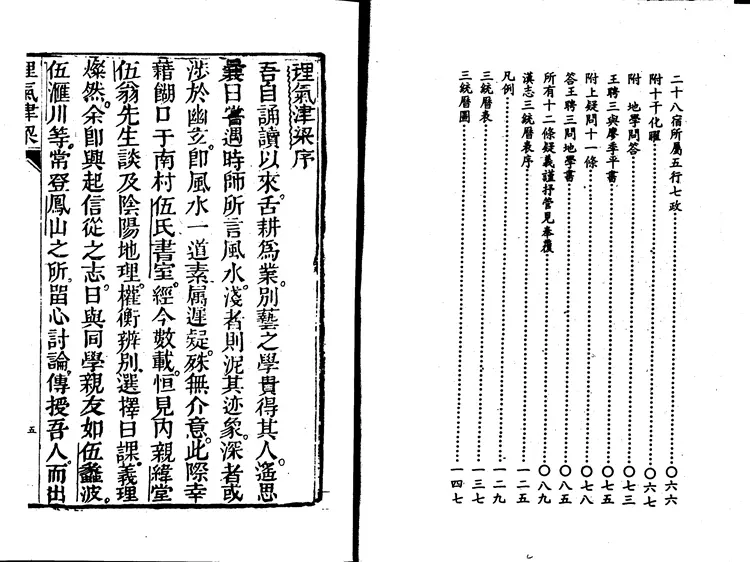 二十八宿所屬五行七政⋯⋯〇六六
附十干化曜⋯⋯〇六七
附　地學問答⋯⋯〇七三
王聘三與廖季平書⋯⋯〇七五
附上疑問十一條⋯⋯〇七八
答王聘三問地學書⋯⋯〇八五
所有十二條疑義謹抒管見奉覆⋯⋯〇八九
漢志三統曆表序⋯⋯一二五
凡例⋯⋯一二九
三統曆表⋯⋯一三七
三統曆圖⋯⋯一四七
理氣津梁序
吾自誦讀以來。舌耕為業。別藝之學貴得其人。遙思
曩日嘗遇時師所言風水。淺者則泥其迹象。深者或
涉於幽玄。即風水一道素屬遲疑。殊無介意。此際幸
藉餬口于南村伍氏書室。經今數載。恒見內親緯堂
伍翁先生談及陰陽地理。權衡辨別。選擇日課。義理
燦然。余卽興起信從之志。日與同學親友如伍蠡波。
伍滙川等。常登鳳山之所。畱心討論。傳授吾人。而出
理氣津梁
五